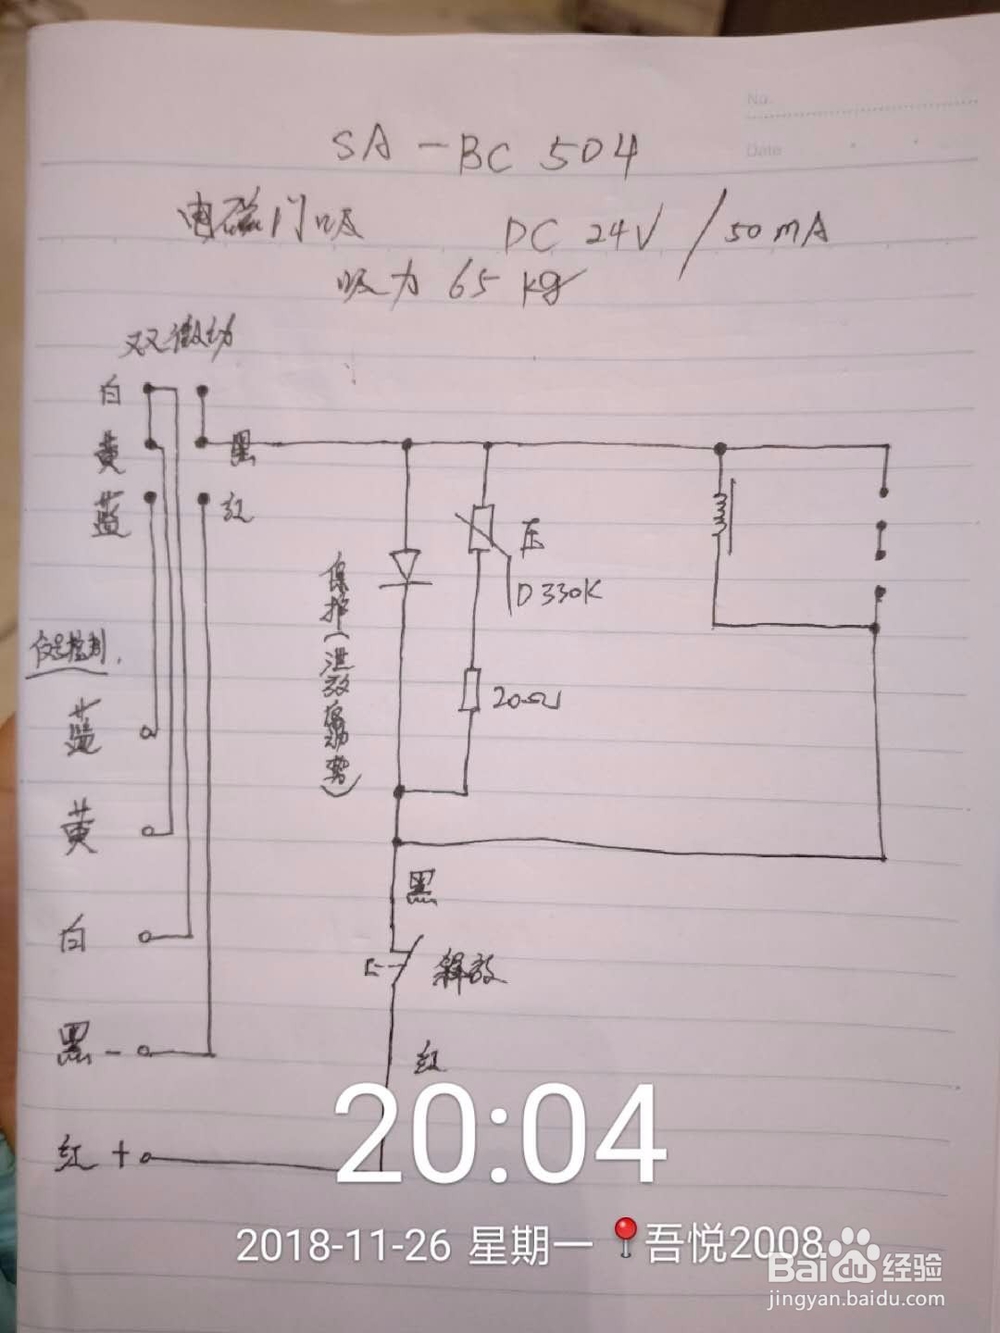 No.
Date
SA-BC 504
电磁门吸 DC 24V / 50mA
吸力 65 kg
双微动
白
黄 黑
蓝 红
压
D330K
保护(泄放感动势)
20Ω
信号控制.
蓝
黄
白
黑 -
红 +
黑
释放
红
20:04
2018-11-26 星期一 吾悦2008
Baidu 经验
jingyan.baidu.com